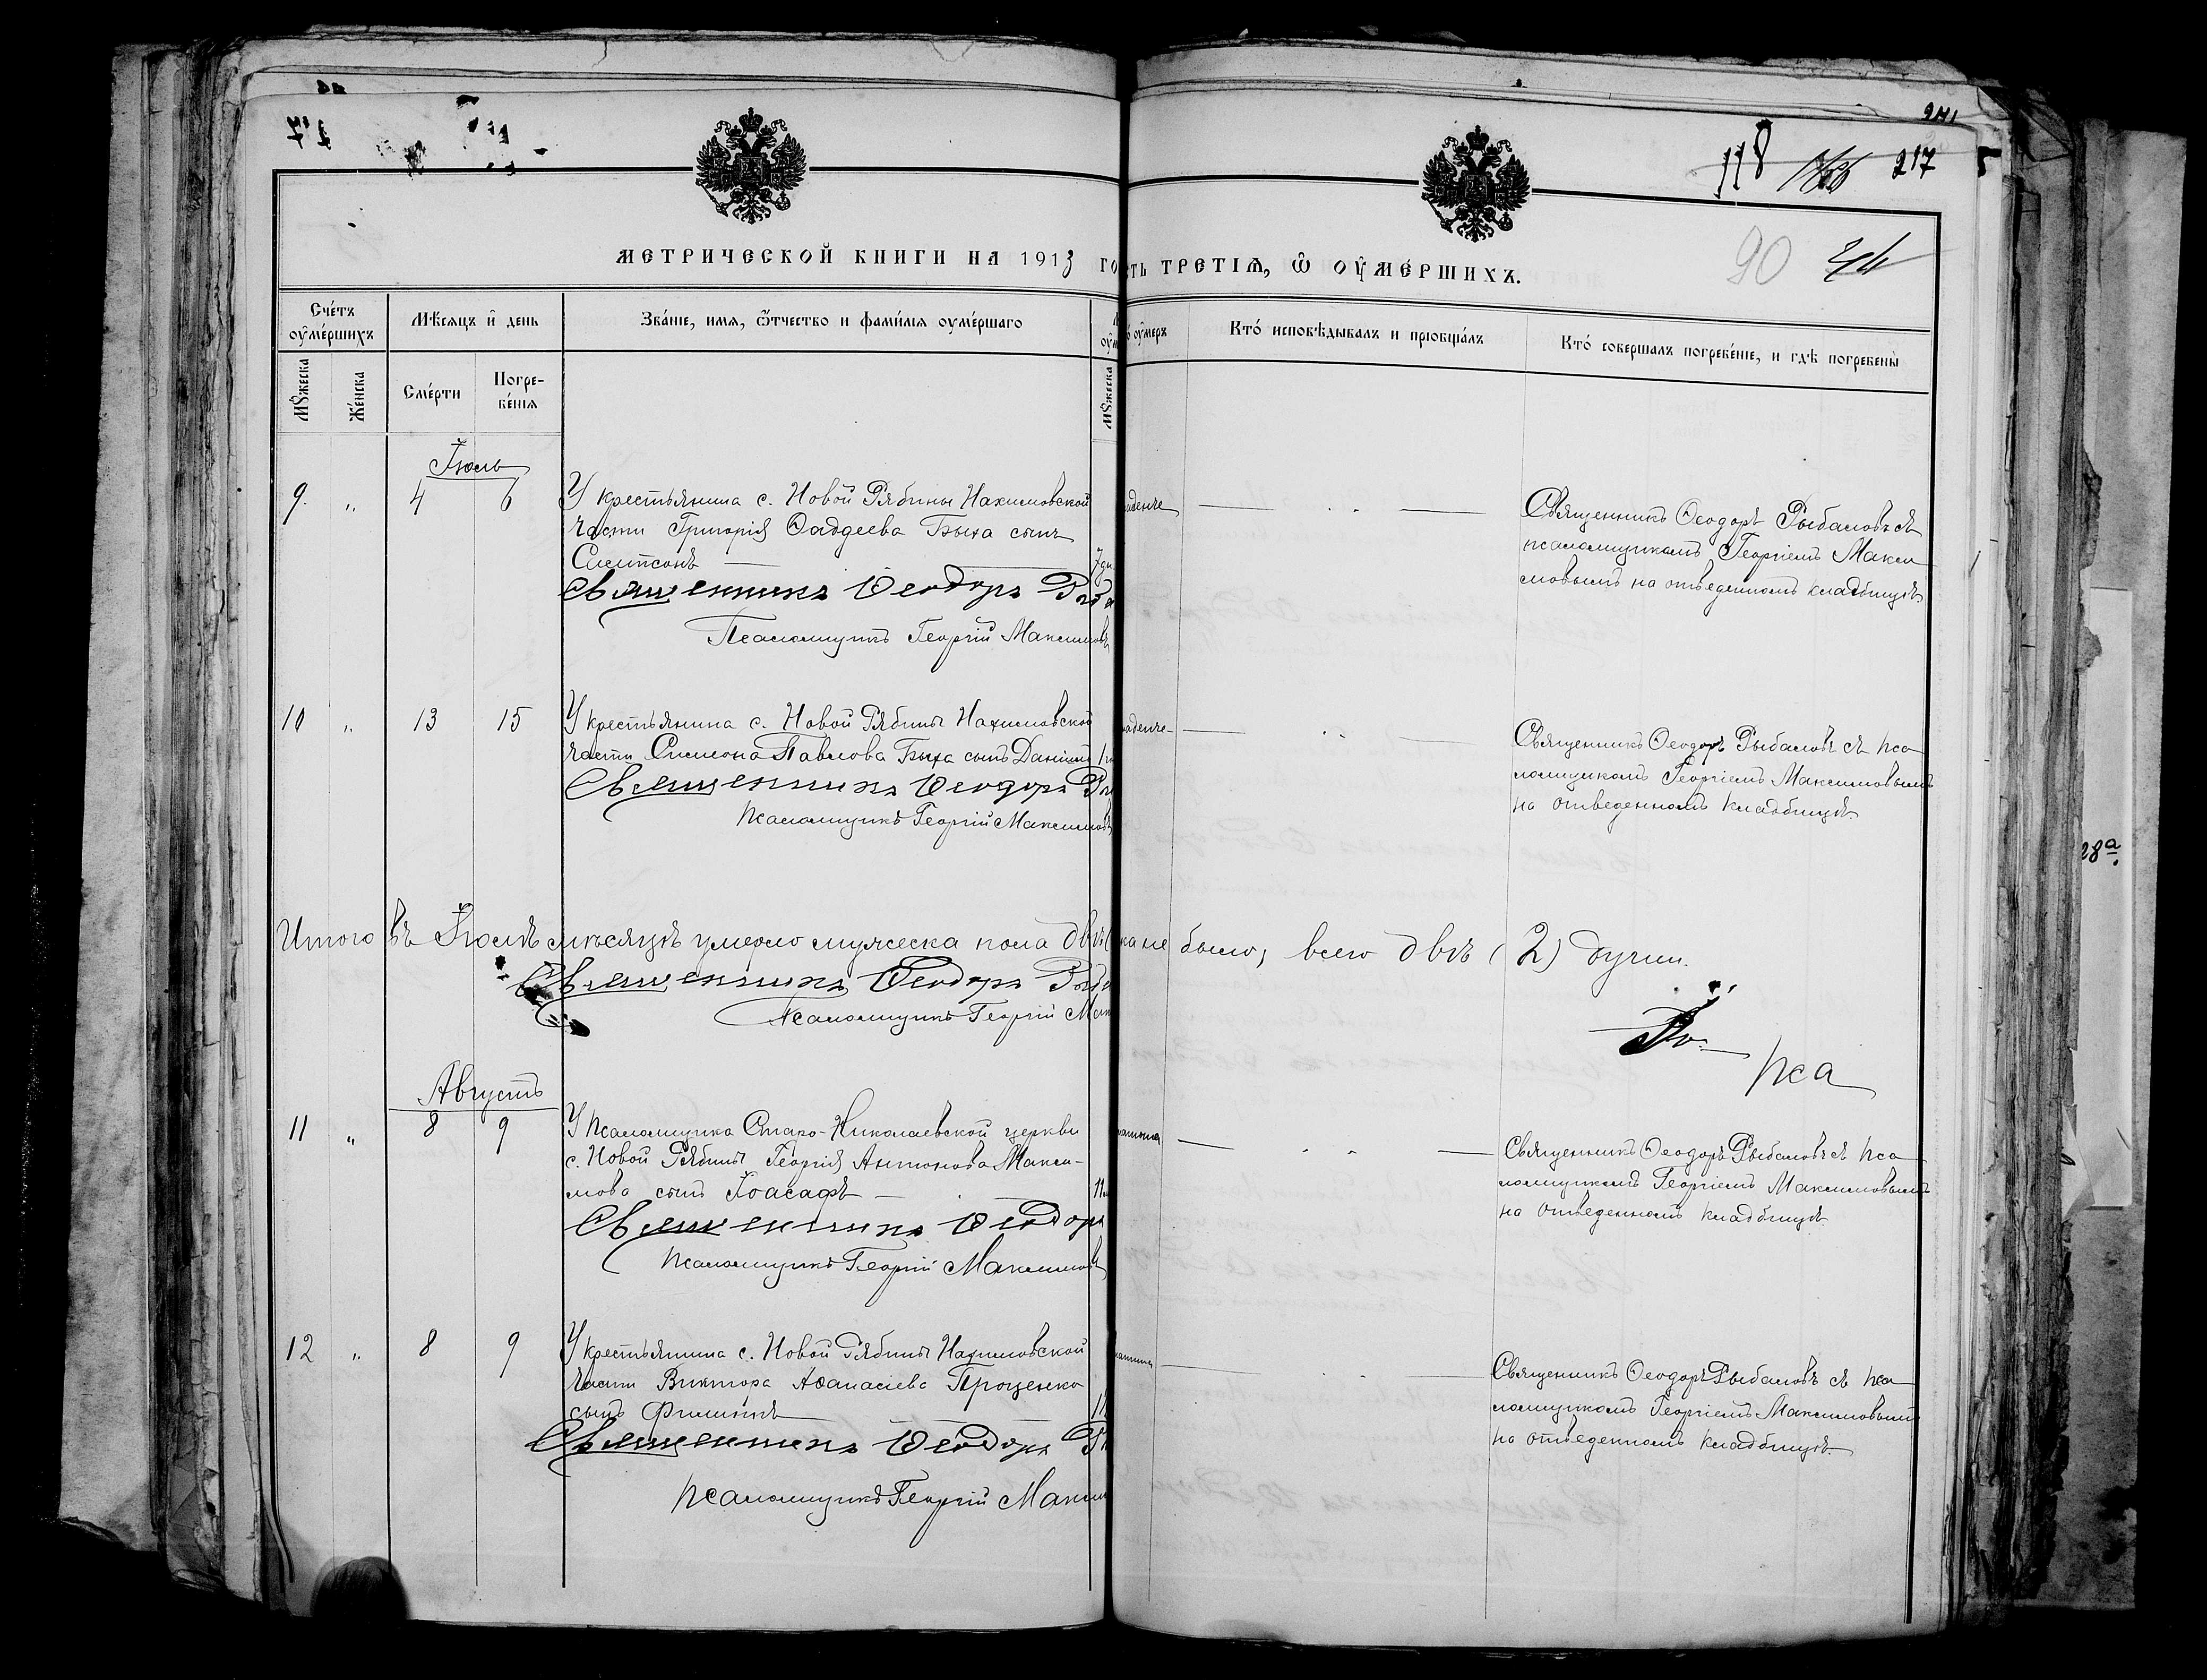 117
118 217
90
МЕТРИЧЕСКОЙ КНИГИ НА 1913 ГО
СТЬ ТРЕТІѦ, Ѿ ОУМЕ́РШИХЪ.
Сче́тъ оумершихъ
Мꙋжеска
Же́нска
Мѣсяцъ и день
Сме́рти
Погребе́нія
Зва́ніе, имя, ѿтчество и фами́лія оуме́ршаго
Мꙋжеска
оу́меръ
Кто́ исповѣдывалъ и пріобща́лъ
Кто́ совершалъ погребе́ніе, и гдѣ погребены̀
Іюль
9. „ 4 6 У крестьянина с. Новой Рябины Нахимовской
части Григорія Ѳаддеева Быха сынъ
Симпсонъ — 7 дн
Священникъ Ѳеодоръ Рыба
Псаломщикъ Георгій Максимовъ
аденче — „ —
Священникъ Ѳеодоръ Рыбаловъ съ
псаломщикомъ Георгіемъ Макси
мовымъ на отведенномъ кладбищѣ
10 „ 13 15 У крестьянина с. Новой Рябины Нахимовской
части Симеона Павлова Быха сынъ Даніилъ
Священникъ Ѳеодоръ Ры
Псаломщикъ Георгій Максимовъ
аденче — „ —
Священникъ Ѳеодоръ Рыбаловъ съ пса
ломщикомъ Георгіемъ Максимовымъ
на отведенномъ кладбищѣ.
Итого въ Іюлѣ мѣсяцѣ умерло мужеска пола двѣ (
ка не было, всего двѣ (2) души.
Священникъ Ѳеодоръ Рыба
Псаломщикъ Георгій Мак
Пса
Августъ
11 „ 8 9 У псаломщика Старо-Николаевской церкви
с. Новой Рябины Георгія Антонова Макси-
мова сынъ Іоасафъ — 11
Священникъ Ѳеодоръ
Псаломщикъ Георгій Максимовъ
— „ —
Священникъ Ѳеодоръ Рыбаловъ съ пса
ломщикомъ Георгіемъ Максимовымъ
на отведенномъ кладбищѣ
12 „ 8 9 У крестьянина с. Новой Рябины Нахимовской
части Виктора Аѳанасіева Проценко
сынъ Филиппъ — 11
Священникъ Ѳеодоръ Ры
Псаломщикъ Георгій Макси
— „ —
Священникъ Ѳеодоръ Рыбаловъ съ пса
ломщикомъ Георгіемъ Максимовымъ
на отведенномъ кладбищѣ.
28а